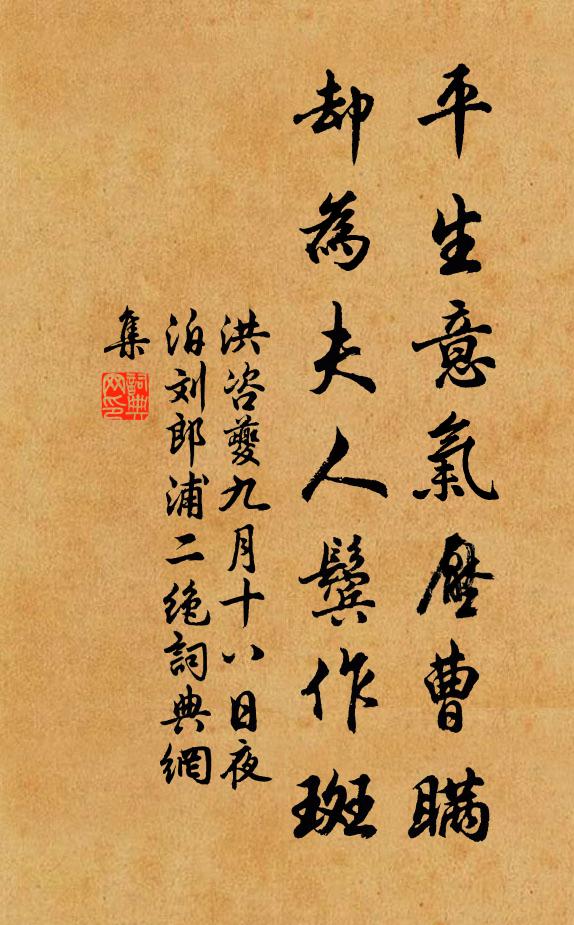 平生意氣壓曹瞞
却為夫人鬢作斑
洪咨夔九月十八日夜
泊刘郎浦二绝詞典網
集
詞典
网印